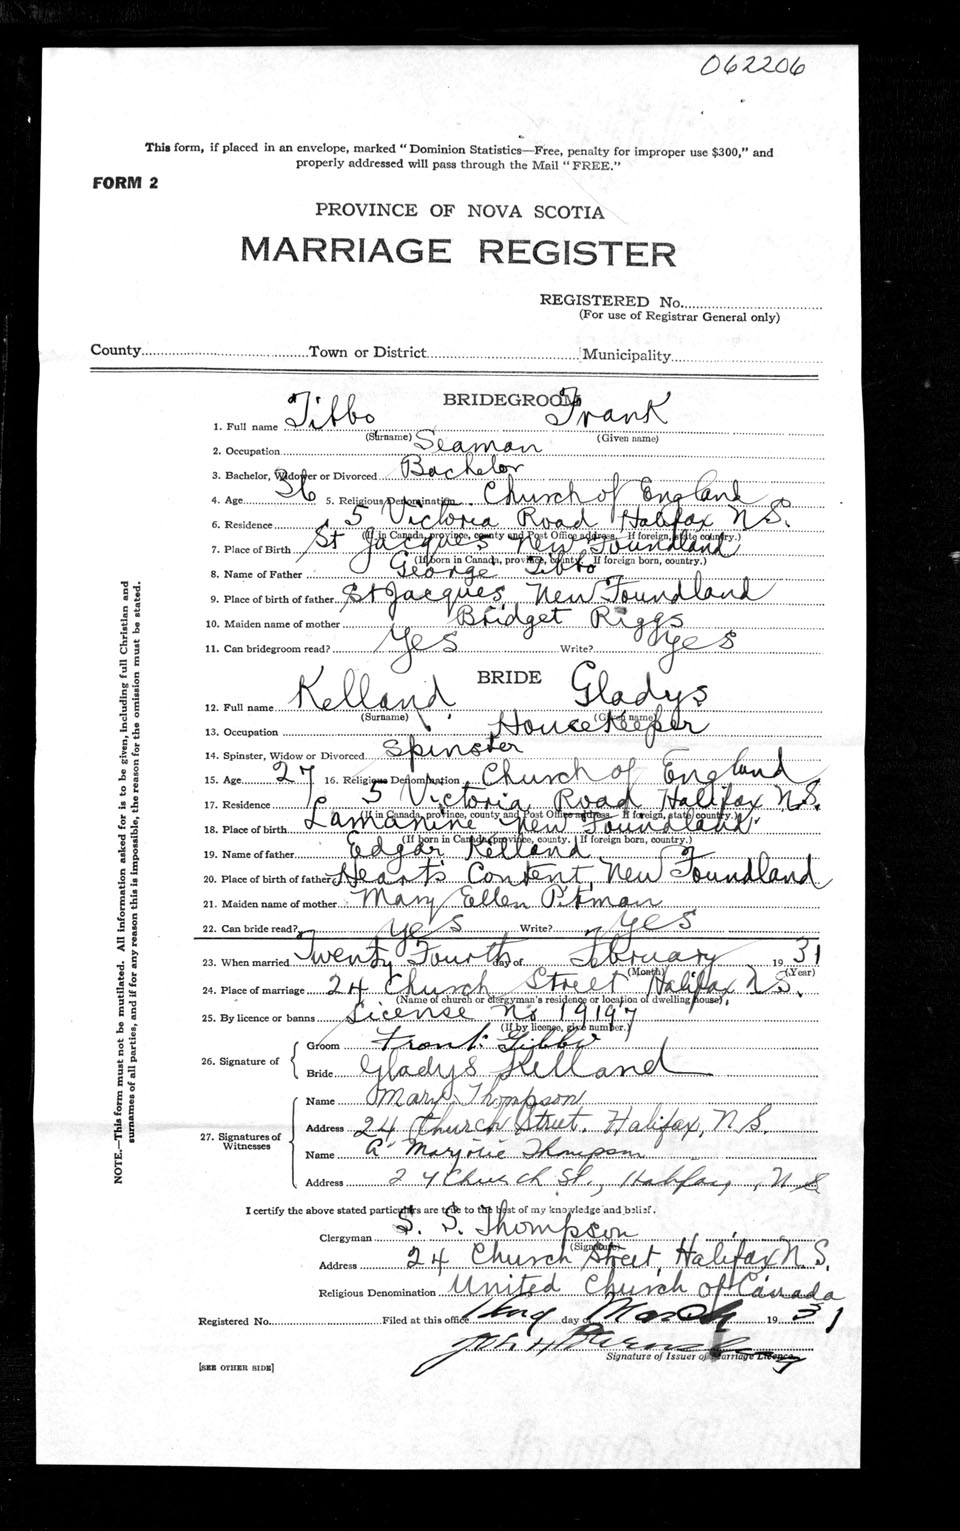 062206
This form, if placed in an envelope, marked "Dominion Statistics—Free, penalty for improper use $300," and
properly addressed will pass through the Mail "FREE."
FORM 2
PROVINCE OF NOVA SCOTIA
MARRIAGE REGISTER
REGISTERED No.
(For use of Registrar General only)
County Town or District Municipality
BRIDEGROOM
1. Full name Tibbo Frank
(Surname) (Given name)
2. Occupation Seaman
3. Bachelor, Widower or Divorced Bachelor
4. Age 36 5. Religious Denomination Church of England
6. Residence 5 Victoria Road Halifax N.S.
(If in Canada, province, county and Post Office address. If foreign, state country.)
7. Place of Birth St Jacques New Foundland
(If born in Canada, province, county. If foreign born, country.)
8. Name of Father George Tibbo
9. Place of birth of father St Jacques, New Foundland
10. Maiden name of mother Bridget Riggs
11. Can bridegroom read? Yes Write? Yes
BRIDE
12. Full name Kelland Gladys
(Surname) (Given name)
13. Occupation HouseKeeper
14. Spinster, Widow or Divorced Spinster
15. Age 27 16. Religious Denomination Church of England
17. Residence 5 Victoria Road Halifax N.S.
(If in Canada, province, county and Post Office address. If foreign, state country.)
18. Place of birth Lamanine New Foundland
(If born in Canada, province, county. If foreign born, country.)
19. Name of father Edgar Kelland
20. Place of birth of father Hearts Content, New Foundland
21. Maiden name of mother Mary Ellen Pitman
22. Can bride read? Yes Write? Yes
23. When married Twenty Fourth day of February 1931
(Month) (Year)
24. Place of marriage 24 Church Street Halifax N.S.
(Name of church or clergyman's residence or location of dwelling house)
25. By licence or banns License No 19197
(If by license, give number.)
26. Signature of
Groom Frank Tibbo
Bride Gladys Kelland
27. Signatures of Witnesses
Name Mary Thompson
Address 24 Church Street. Halifax, N.S.
Name A Marjorie Thompson
Address 24 Church St., Halifax, N.S
I certify the above stated particulars are true to the best of my knowledge and belief.
Clergyman S. S. Thompson
(Signature)
Address 24 Church Street, Halifax N.S.
Religious Denomination United Church of Canada
Registered No. Filed at this office 2nd day of March 1931
Signature of Issuer of Marriage Licence
[SEE OTHER SIDE]
NOTE.—This form must not be mutilated. All information asked for is to be given, including full Christian and
surnames of all parties, and if for any reason this is impossible, the reason for the omission must be stated.